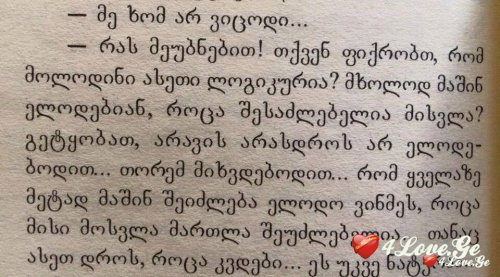 — მე ხომ არ ვიცოდი...
— რას მეუბნებით! თქვენ ფიქრობთ, რომ
მოლოდინი ასეთი ლოგიკურია? მხოლოდ მაშინ
ელოდებიან, როცა შესაძლებელია მისვლა?
გეტყობათ, არავის არასდროს არ ელოდე-
ბოდით... თორემ მიხვდებოდით... რომ ყველაზე
მეტად მაშინ შეიძლება ელოდო ვინმეს, როცა
მისი მოსვლა მართლა შეუძლებელია... თანაც
ასეთ დროს, როცა კვდები... ეს უკვე
4Love.Ge
4Love.Ge